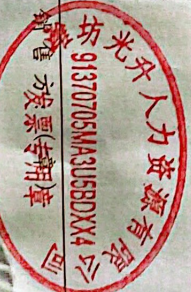 潍坊光升人力资源有限公司
91370705MA3U5BDXX4
发票专用章
销售方(章)